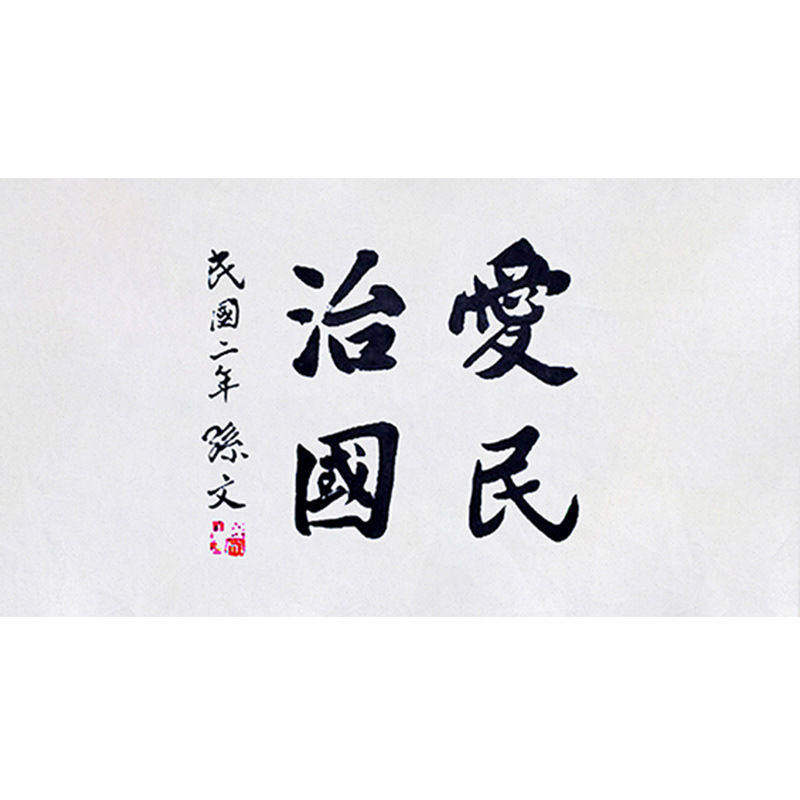 愛民
治國
民國二年 孫文